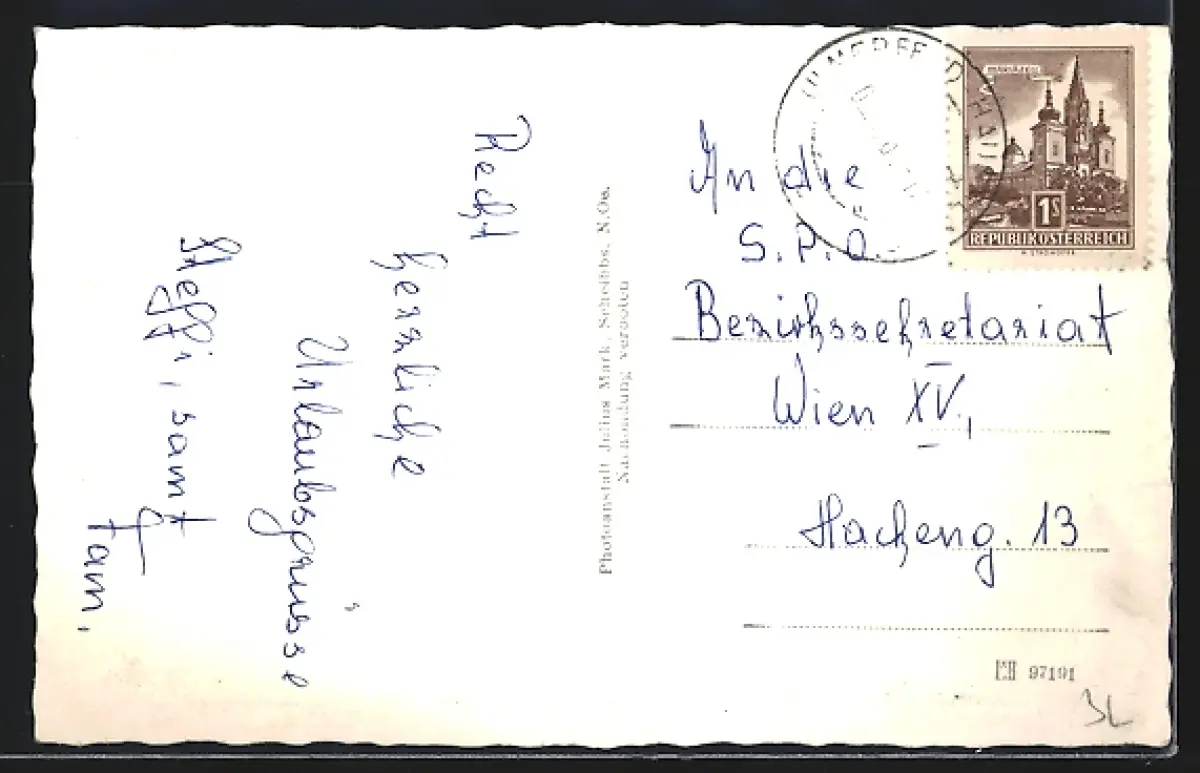 Recht
herzliche
Urlaubsgrüsse
Steffi, samt
Fam.
Photoanstalt Julius Mark, Scheibbs, N.Oe.
Nachsendung verboten
MARIAZELL
1S
REPUBLIK ÖSTERREICH
An die
S.P.Ö.
Bezirkssekretariat
Wien XV.,
Hackeng. 13
97101
3L